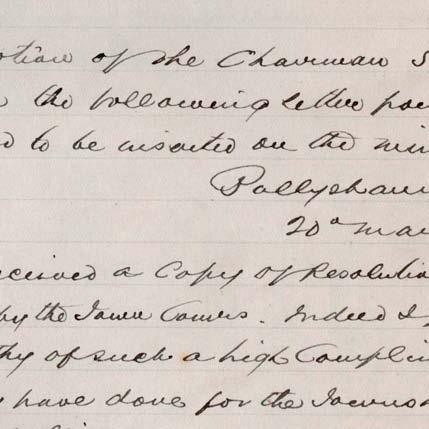 otion of the Chairman S
the following letter
to be inserted on the min
Ballyshann
20th Mar
eceived a Copy of Resolutio
by the Town Comrs. Indeed I
thy of such a high Complim
have done for the Towns